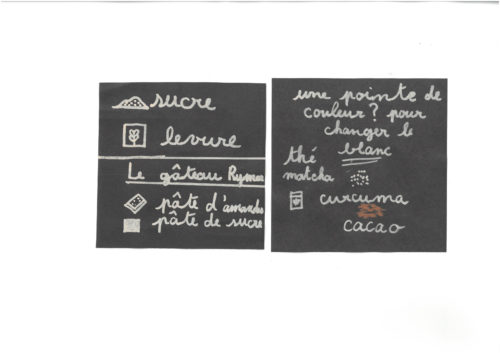 sucre
levure
Le gâteau
pâte d'amandes
pâte de sucre
une pointe de
couleur? pour
changer le
blanc
thé
matcha
curcuma
cacao